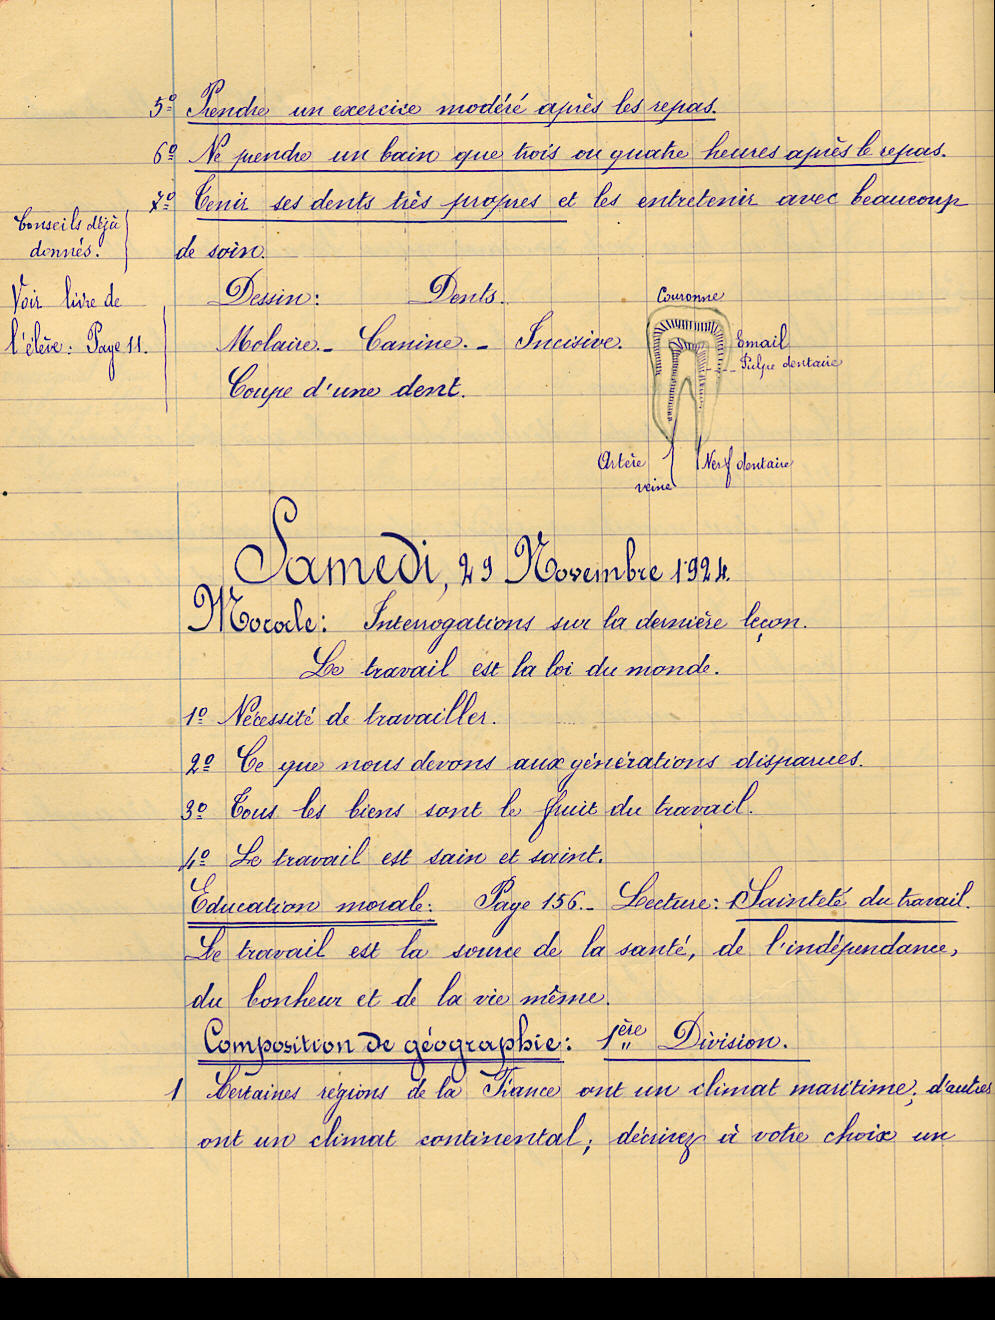 5º Prendre un exercice modéré après les repas.
6º Ne prendre un bain que trois ou quatre heures après le repas.
7º Tenir ses dents très propres et les entretenir avec beaucoup
de soin.
Conseils déjà
donnés.
Voir livre de
l'élève: Page 11.
Dessin: Dents.
Molaire. - Canine. - Incisive.
Coupe d'une dent.
Couronne
Email
Pulpe dentaire
Artère
Nerf dentaire
veine
Samedi, 29 Novembre 1924.
Morale: Interrogations sur la dernière leçon.
Le travail est la loi du monde.
1º Nécessité de travailler.
2º Ce que nous devons aux générations disparues.
3º Tous les biens sont le fruit du travail.
4º Le travail est sain et saint.
Education morale: Page 156. - Lecture: Sainteté du travail.
Le travail est la source de la santé, de l'indépendance,
du bonheur et de la vie même.
Composition de géographie: 1ère Division.
1 Certaines régions de la France ont un climat maritime; d'autres
ont un climat continental; décrivez à votre choix un